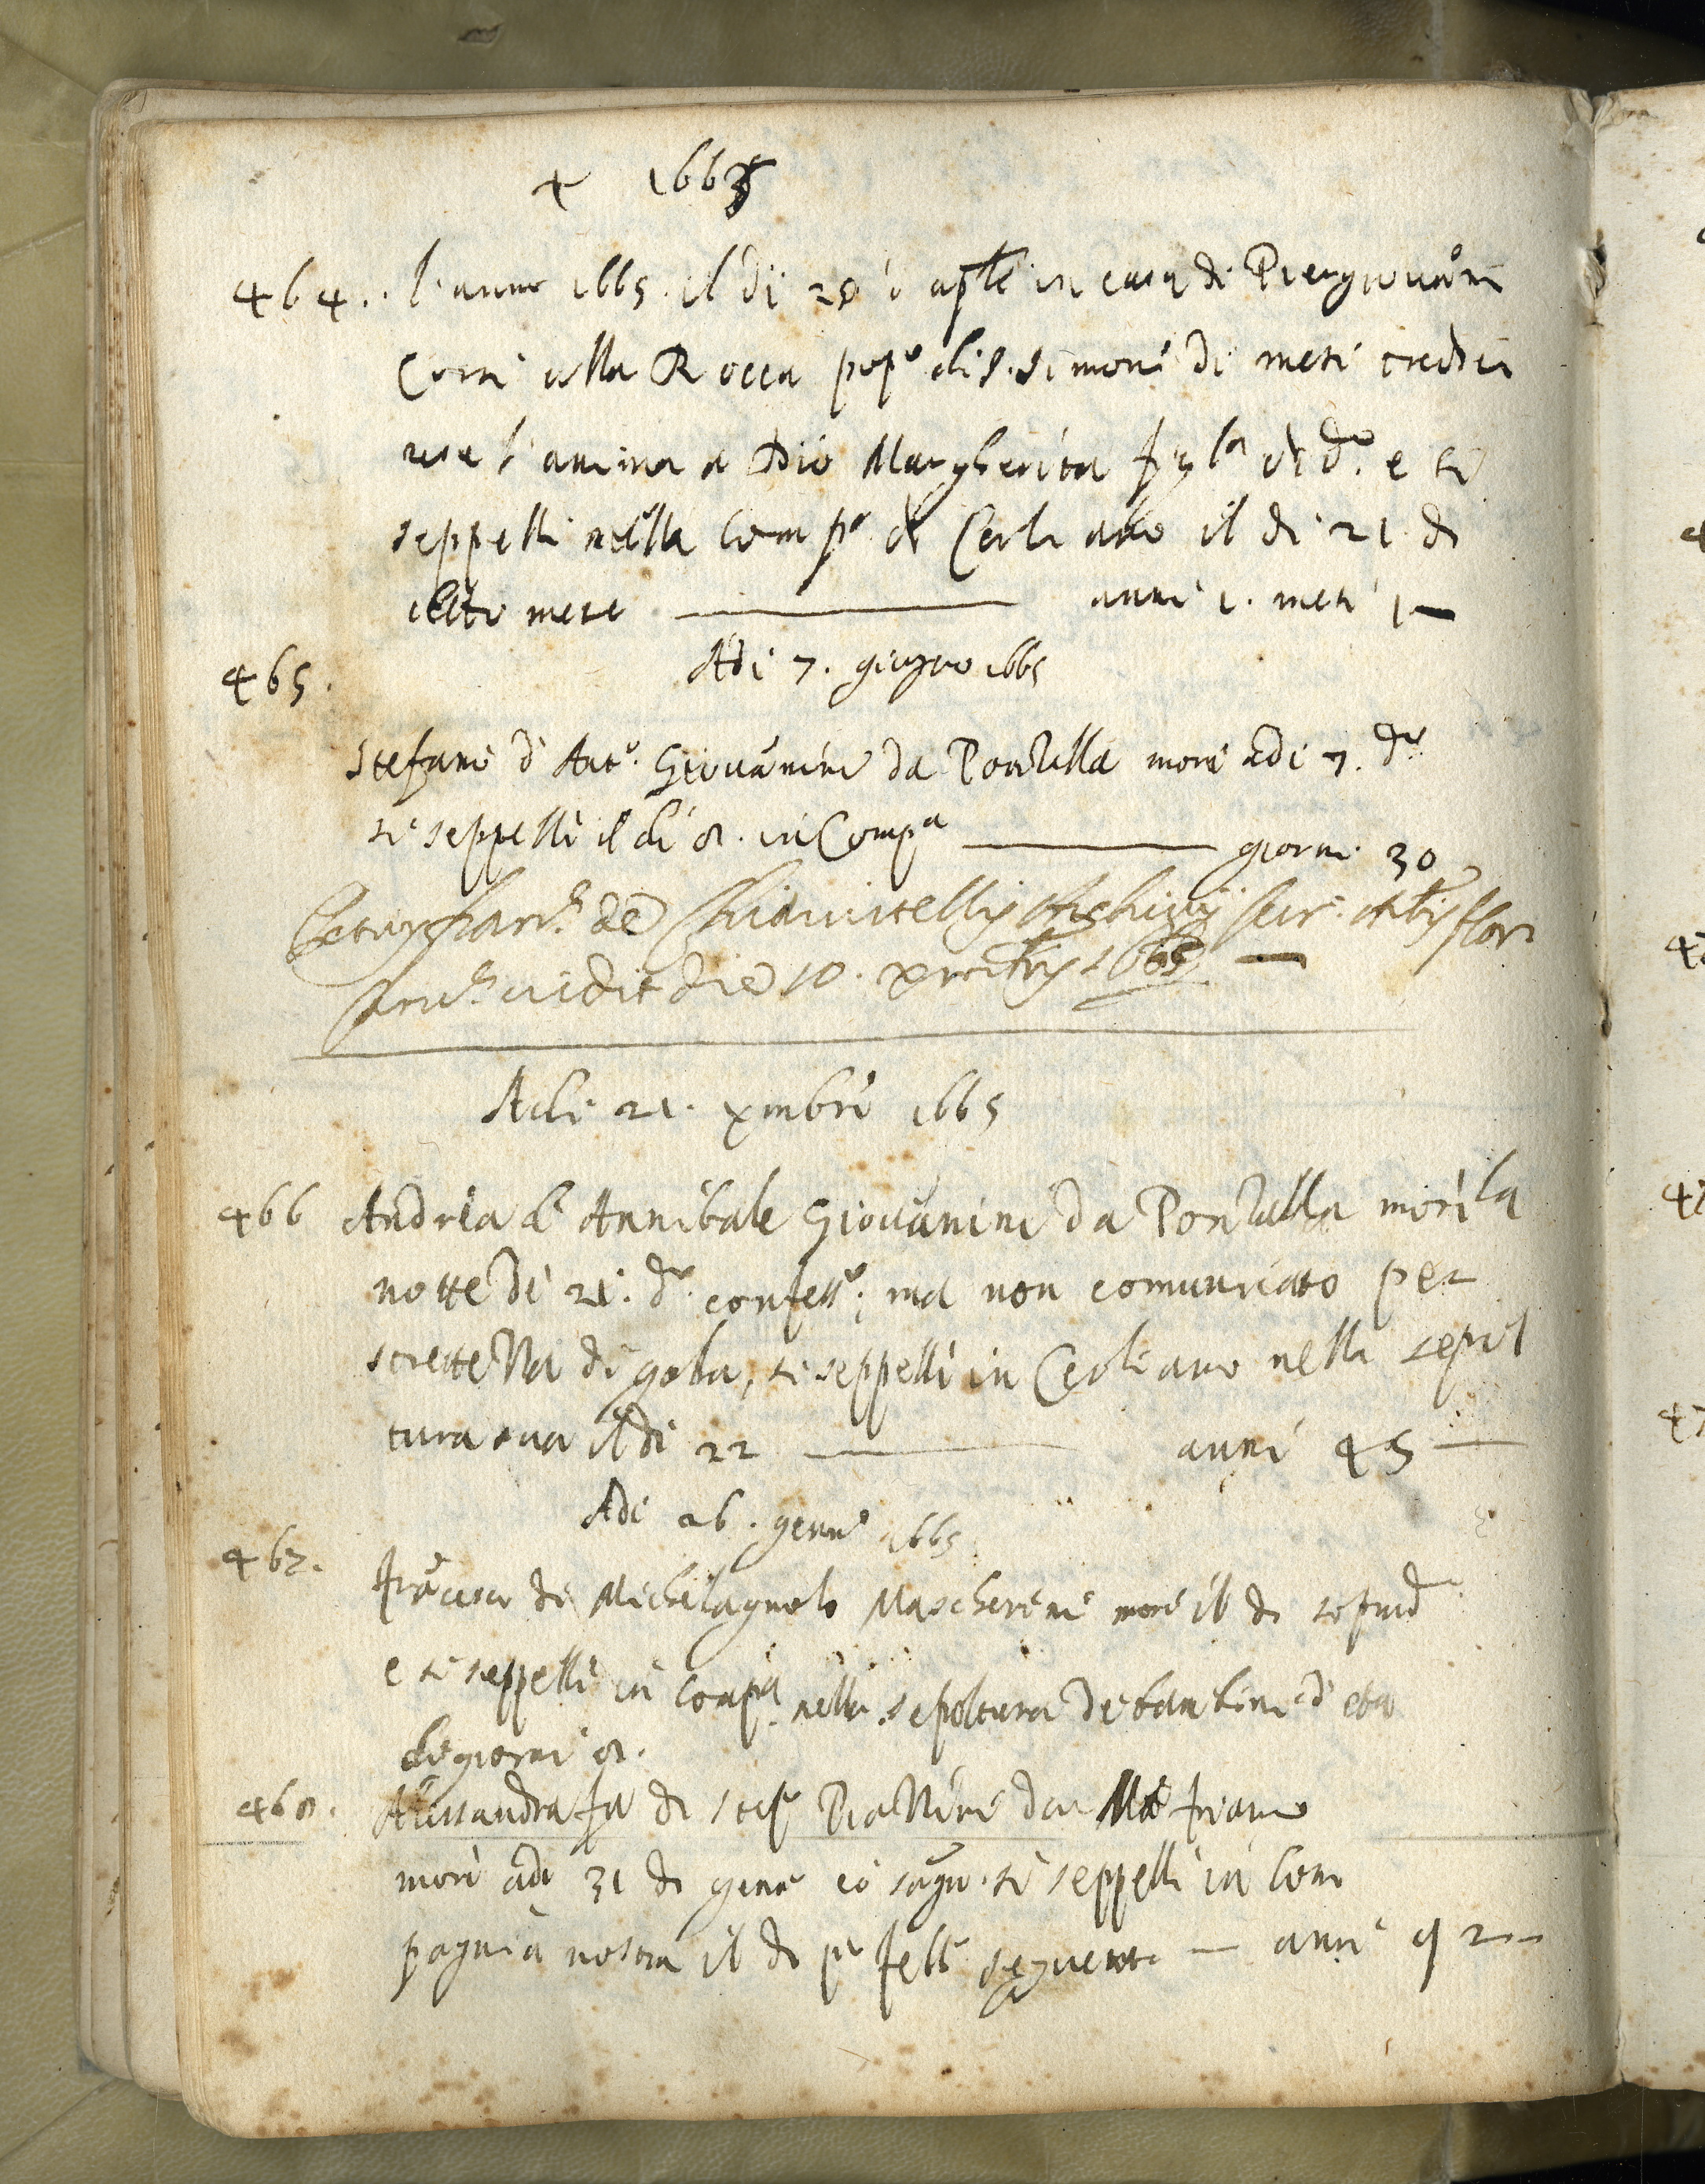 + 1665
464. l'anno 1665. il dì 20 d'aple in casa di Piergiovāni
Corsi alla Rocca popo di S. Simone di mesi tredici
rese l'anima a Dio Margherita figla di do. e si
seppellì nella Compa di Cerliano il dì 21 di
detto mese ——— anni 1. mesi 1—
Adi 7. giugno 1665
465.
Stefano d'Anto. Giovānini da Pontalla morì adi 7. do
si seppellì il dì 8. in Compa ——— giorni 30
de
vidit die 10. Xmbris 1665 —
Adi 21. xmbre 1665
466 Andrea d'Annibale Giovānini da Pontalla morì la
notte dì 21. do. confesso; ma non comunicato per
strettezza di gola, si seppellì in Cerliano nella sepol
tura sua il dì 22 ——— anni 45 —
Adi 26. genno 1665
467. Frācesco di Michelagnolo Mascherini morì il dì
e si seppellì in Compa. nella sepoltura de bambini d'età
di giorni 8.
468. Alessandra fa di Stefo Piattini da
morì adi 31 di geno si seppellì in Com
pagnia nostra il dì po febb seguente — anni 42 —